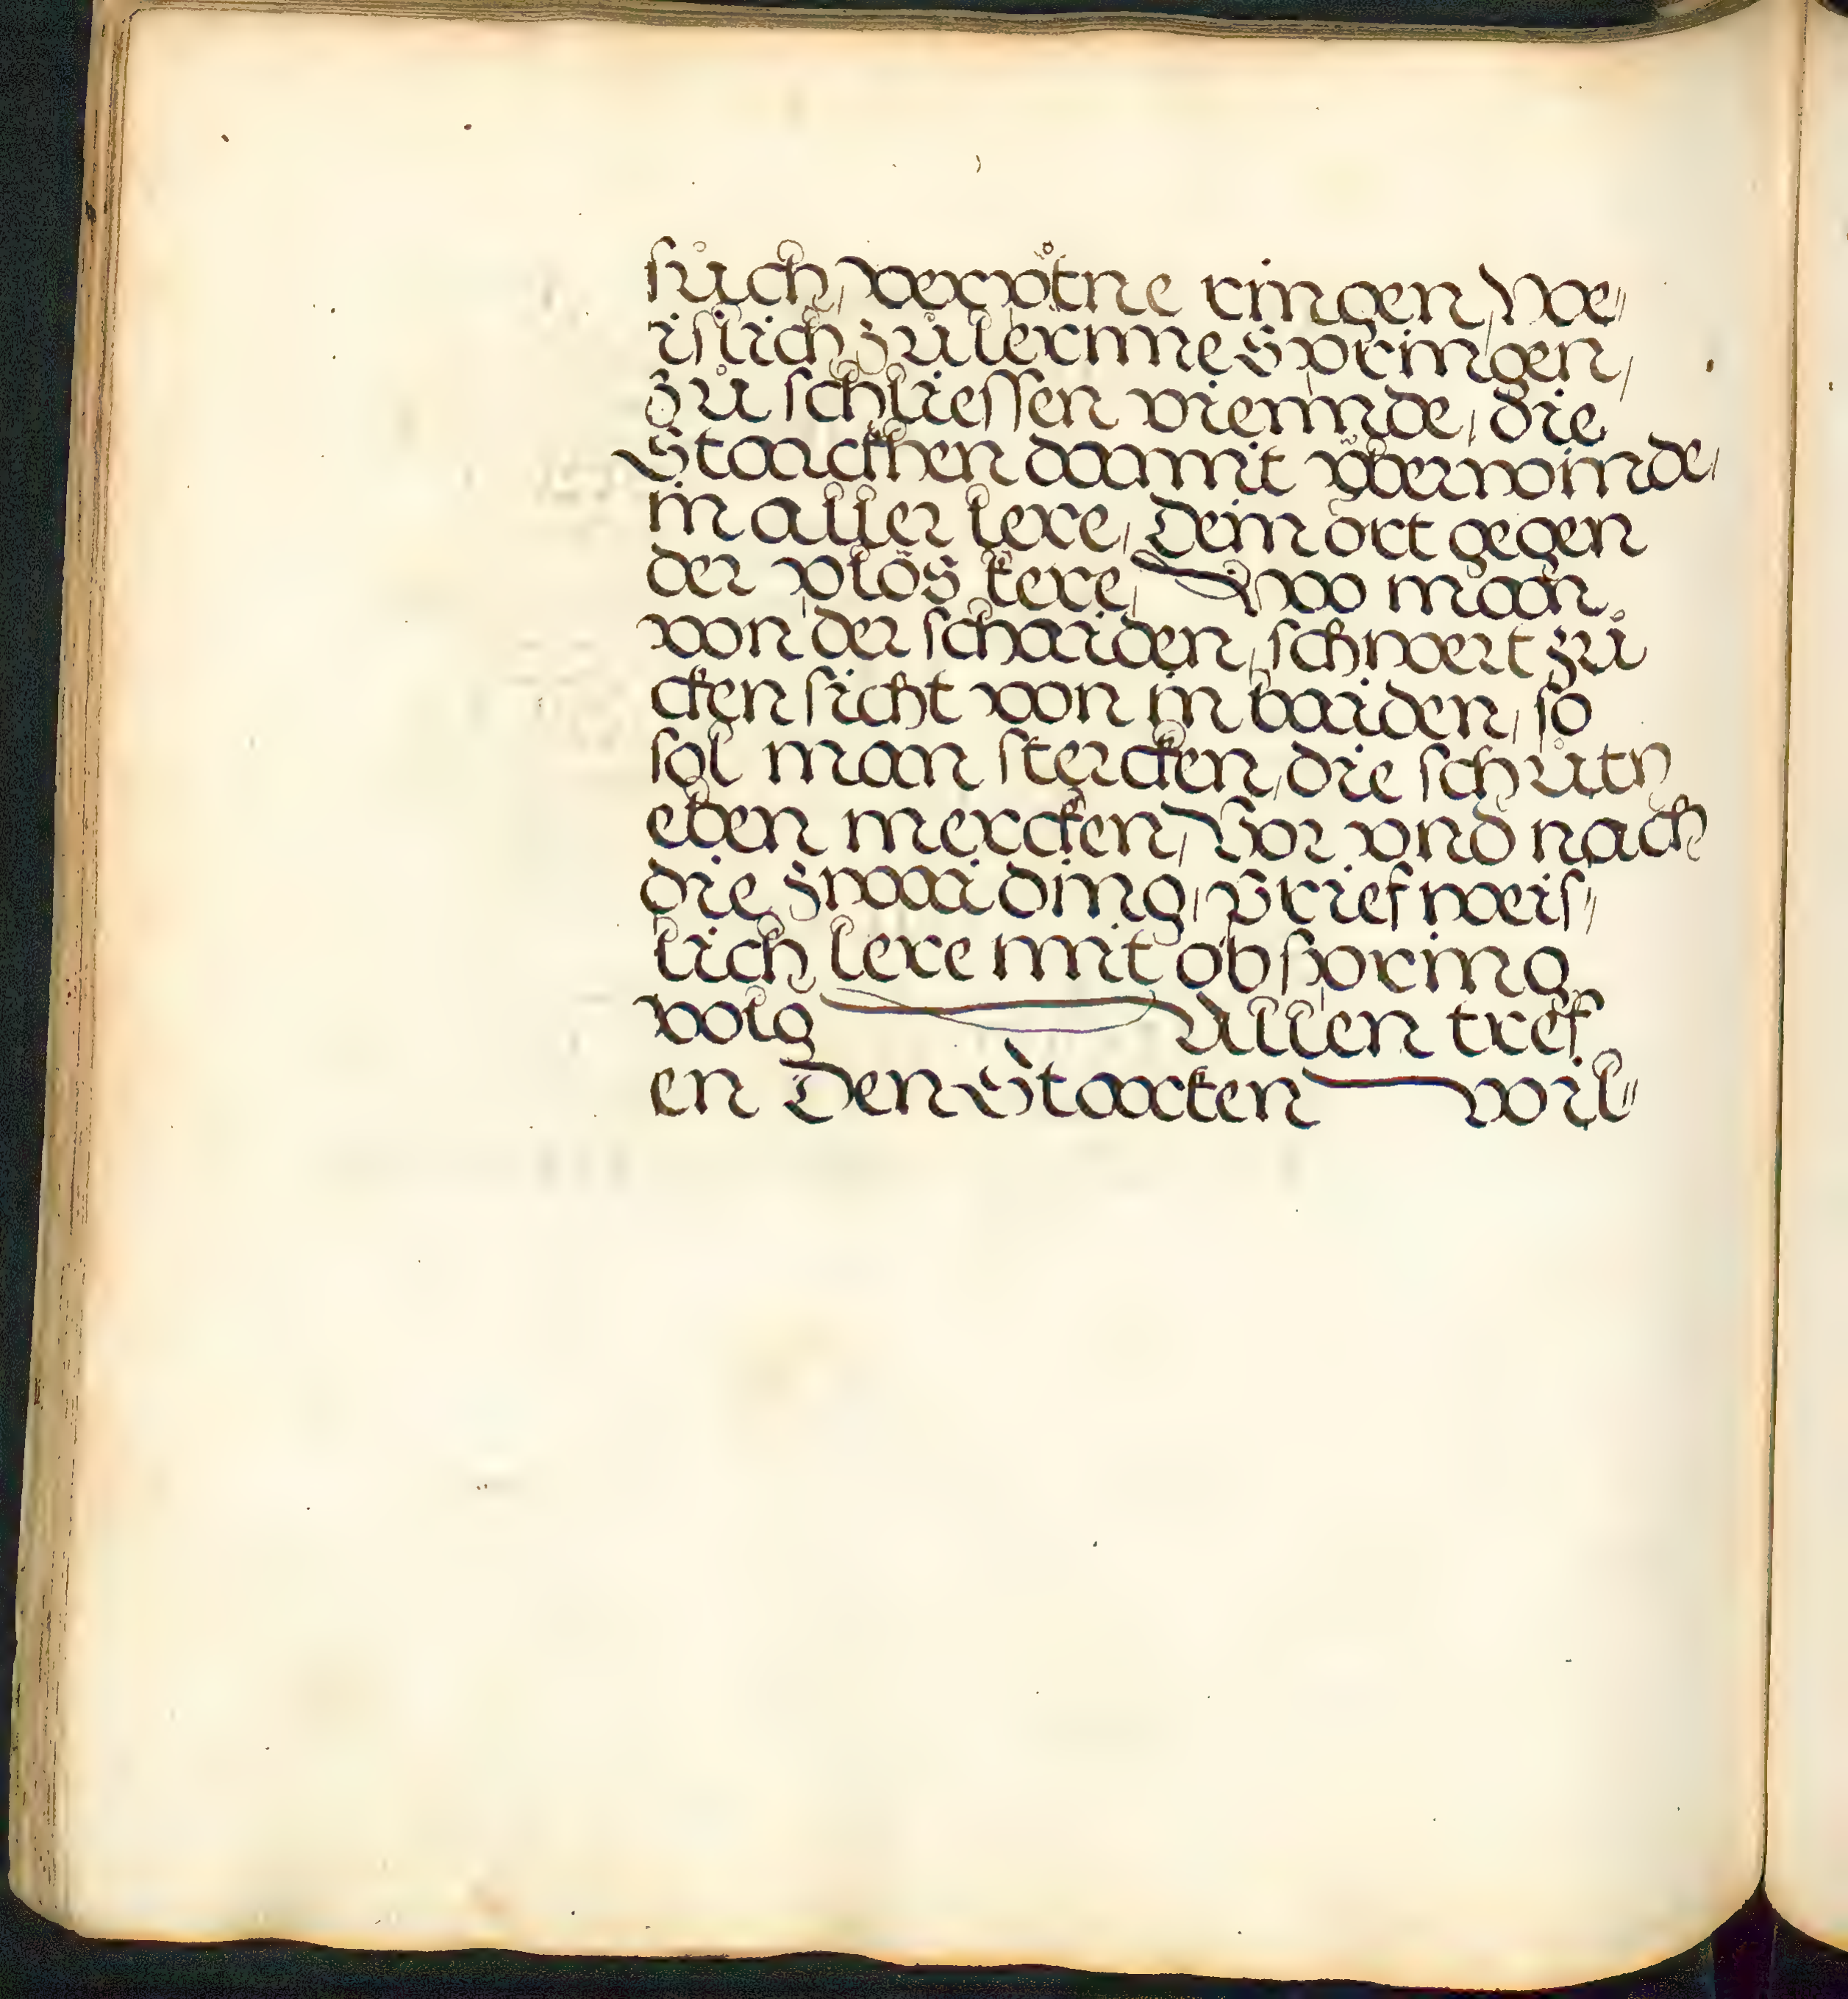 sůch, verpotne ringen, We„
islich zů lernne springen,
zů schliessen viennde, die
Starckhen damit v̈berwinde,
in aller lere, Dein ort gegen
der plös kere, Wo man
von der schaiden, schwert zů
cken sicht von in baiden, so
sol man stercken, die schritn
eben mercken, Vor vnd nach
die zwai ding, brief weis„
lich lere mit obspring
volg Allen tref
en Den Starcken wil„